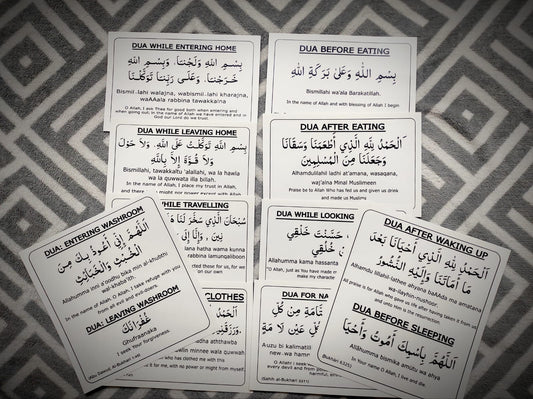 DUA WHILE ENTERING HOME
بِسْمِ اللهِ وَلَجْنَا، وَبِسْمِ اللهِ
خَرَجْنَا، وَعَلَى رَبِّنَا تَوَكَّلْنَا
Bismil-lahi walajna, wabismil-lahi kharajna,
waAAala rabbina tawakkalna
O Allah, I ask Thee for good both when entering and
when going out; in the name of Allah we have entered and in
God our Lord do we trust.
DUA BEFORE EATING
بِسْمِ اللهِ وَعَلَىٰ بَرَكَةِ اللهِ
Bismillahi wa'ala Barakatillah.
In the name of Allah and with blessing of Allah I begin
DUA WHILE LEAVING HOME
بِسْمِ اللهِ تَوَكَّلْتُ عَلَى اللهِ، وَلاَ حَوْلَ
وَلاَ قُوَّةَ إِلاَّ بِاللهِ
Bismillahi, tawakkaltu 'alallahi, wa la hawla
wa la quwwata illa billah.
In the name of Allah, I place my trust in Allah,
might nor power except with Allah
DUA AFTER EATING
اَلْحَمْدُ لِلّٰهِ الَّذِي أَطْعَمَنَا وَسَقَانَا
وَجَعَلَنَا مِنَ الْمُسْلِمِينَ
Alhamdulilahil ladhi at'amana, wasaqana,
waj'aina Minal Muslimeen
Praise be to Allah Who has fed us and given us drink
and made us Muslims
WHILE TRAVELLING
سُبْحَانَ الَّذِي سَخَّرَ لَنَا هَذَا
lana hatha wama kunna
rabbina lamunqaliboon
cted those for us, for we
on our own
DUA WHILE LOOKING
حَسَّنْتَ خَلْقِي
خُلُقِي
Allahumma kama hassanta
"O Allah, just as You have made
make my character
DUA: ENTERING WASHROOM
اَللَّهُمَّ إِنِّي أَعُوذُ بِكَ مِنَ
الْخُبُثِ وَالْخَبَائِثِ
Allahumma inni a'oodhu bika min al-khubthi
wal-khaba'ith
In the name of Allah, O Allah, I take refuge with you
from all evil and evil-doers.
DUA: LEAVING WASHROOM
غُفْرَانَكَ
Ghufraanaka
I seek Your forgiveness.
DUA AFTER WAKING UP
اَلْحَمْدُ لِلّٰهِ الَّذِي أَحْيَانَا بَعْدَ
مَا أَمَاتَنَا وَإِلَيْهِ النُّشُورُ
Alhamdu lillahil-lathee ahyana baAAda ma amatana
wa-ilayhin-nushoor.
All praise is for Allah who gave us life after having taken it from us
and unto Him is the resurrection.
DUA BEFORE SLEEPING
اَللَّهُمَّ بِاسْمِكَ أَمُوتُ وَأَحْيَا
Allahumma bismika amutu wa ahya
In Your name O Allah, I live and die.
(Bukhari 6325)
CLOTHES
اَلْحَمْدُ
وَرَزَقَنِيهِ
aththawba
min minnee wala quwwah
who has clothed me with this
it for me, with no power or might from myself.
DUA FOR
تَامَّةِ مِنْ كُلِّ
كُلِّ عَيْنٍ لَا مَةٍ
A'uzu bi kalimatill
every devil and from
harmful,